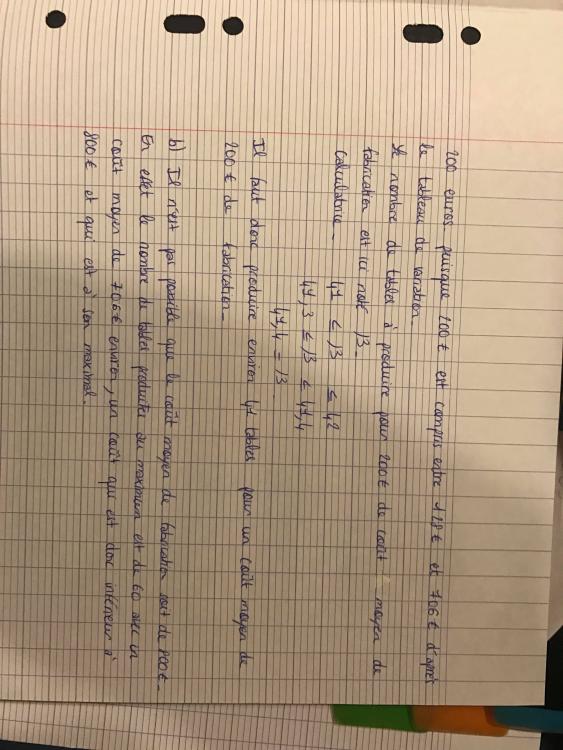 200 euros puisque 200€ est compris entre 128€ et 706€ d'après
le tableau de variation.
Le nombre de tables à produire pour 200€ de coût moyen de
fabrication est ici noté β.
Calculatrice - 41 ≤ β ≤ 42
41,3 ≤ β ≤ 41,4
41,4 = β.
Il faut donc produire environ 41 tables pour un coût moyen de
200€ de fabrication.
b) Il n'est pas possible que le coût moyen de fabrication soit de 800€.
En effet le nombre de tables produites au maximum est de 60 avec un
coût moyen de 706€ environ, un coût qui est donc inférieur à
800€ et qui est à son maximal.